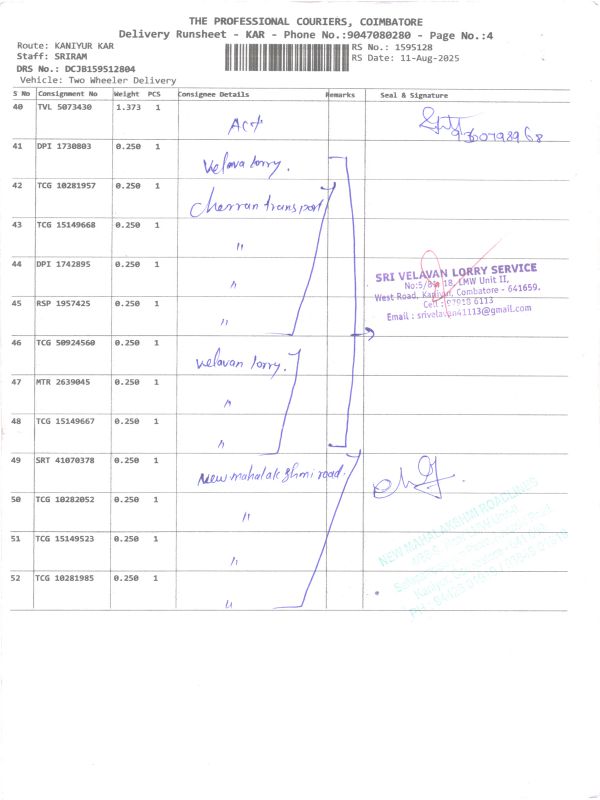 THE PROFESSIONAL COURIERS, COIMBATORE
Delivery Runsheet - KAR - Phone No.:9047080280 - Page No.:4
Route: KANIYUR KAR
Staff: SRIRAM
DRS No.: DCJB159512804
Vehicle: Two Wheeler Delivery
RS No.: 1595128
RS Date: 11-Aug-2025
S No Consignment No Weight PCS Consignee Details Remarks Seal & Signature
40 TVL 5073430 1.373 1
9360798968
41 DPI 1730803 0.250 1 Velava lorry.
42 TCG 10281957 0.250 1 Cherran transport
43 TCG 15149668 0.250 1 "
44 DPI 1742895 0.250 1 "
45 RSP 1957425 0.250 1 "
SRI VELAVAN LORRY SERVICE
No:5/ 18, LMW Unit II,
West Road, Kaniyur, Coimbatore - 641659.
Cell : 97918 6113
Email : srivelavan41113@gmail.com
46 TCG 50924560 0.250 1 Velavan lorry.
47 MTR 2639045 0.250 1 "
48 TCG 15149667 0.250 1 "
49 SRT 41070378 0.250 1 New mahalakshmi road.
50 TCG 10282052 0.250 1 "
51 TCG 15149523 0.250 1 "
52 TCG 10281985 0.250 1 "
NEW MAHALAKSHMI ROADLINES